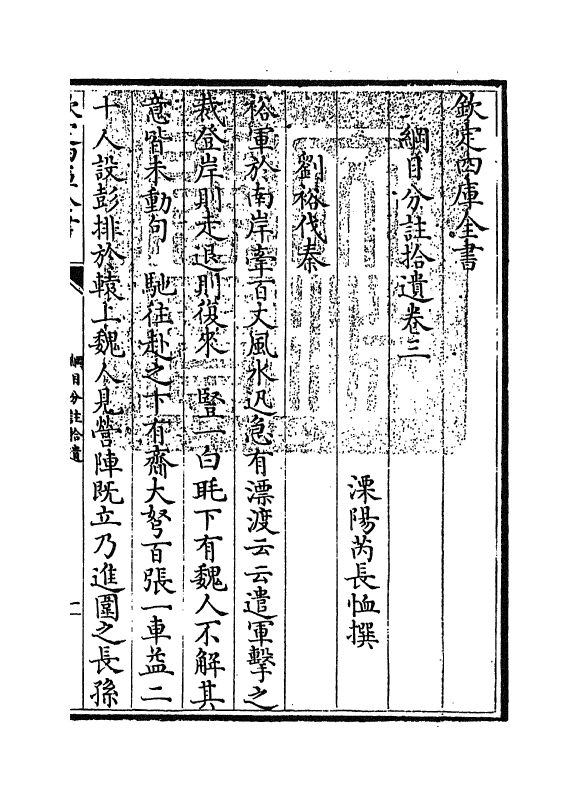 欽定四庫全書
綱目分註拾遺卷三
溧陽芮長恤撰
劉裕伐秦
裕軍於南岸牽百丈風氷迅急有漂渡云云遣軍擊之
裁登岸則走退則復來　豎一白毦下有魏人不解其
意皆未動句　馳往赴之下有齎大弩百張一車益二
十人設彭排於轅上魏人見營陣既立乃進圍之長孫
欽定四庫全書
綱目分註拾遺
一